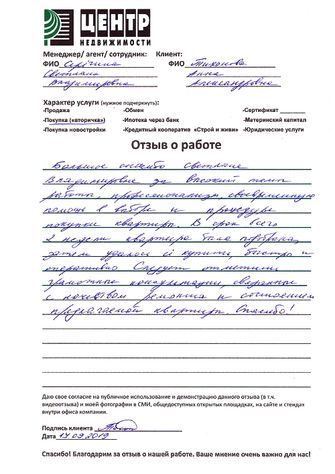 ЦЕНТР
НЕДВИЖИМОСТИ
Менеджер/ агент/ сотрудник: Клиент:
ФИО Серёгина ФИО Тихонова
Светлана Анна
Владимировна Александровна
Характер услуги (нужное подчеркнуть):
-Продажа -Обмен -Сертификат
-Покупка (вторичка) -Ипотека через банк -Материнский капитал
-Покупка новостройки -Кредитный кооператив «Строй и живи» -Юридические услуги
Отзыв о работе
Большое спасибо Светлане
Владимировне за высокий темп
работы, профессионализм, своевременную
помощь в выборе и процедуре
покупки квартиры. В срок всего
2 недели квартира была продана,
затем удалось и купить, быстро и
оперативно. Следует отметить
грамотные консультации, связанные
с качеством ремонта и состоянием
предлагаемой квартиры. Спасибо!
Даю свое согласие на публичное использование и демонстрацию данного отзыва (в т.ч.
видеоотзыва) и моей фотографии в СМИ, общедоступных открытых площадках, на сайте и стендах
внутри офиса компании.
Подпись клиента
Дата 14.09.2019
Спасибо! Благодарим за отзыв о нашей работе. Ваше мнение очень важно для нас!